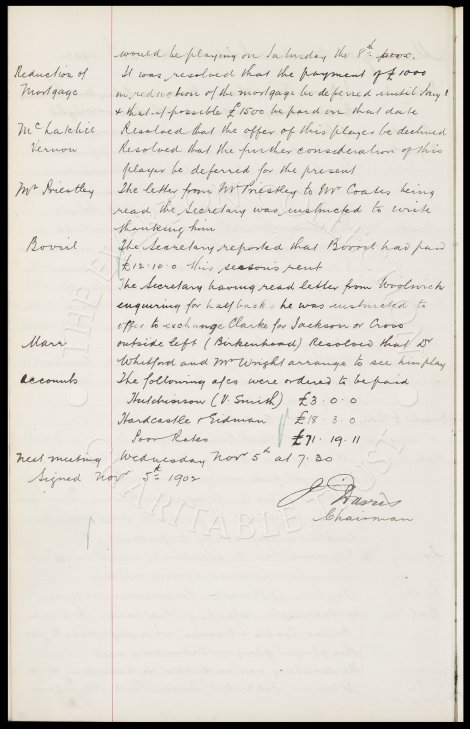 would be playing on Saturday the 8th prox.
Reduction of It was resolved that the payment of £1000
Mortgage in reduction of the mortgage be deferred until Jany 1
& that if possible £1500 be paid on that date
McLatchie Resolved that the offer of this player be declined
Vernon Resolved that the further consideration of this
player be deferred for the present
Mr Priestley The letter from Mr Priestley to Mr Coates being
read the Secretary was instructed to write
thanking him
Bovril The Secretary reported that Bovril had paid
£12.10.0 this seasons rent
The Secretary having read letter from Woolwich
enquiring for half back he was instructed to
offer to exchange Clarke for Jackson or Cross
Marr outside left (Birkenhead) Resolved that Dr
Whitford and Mr Wright arrange to see him play
accounts The following a/cs were ordered to be paid
Hutchinson (V. Smith) £3.0.0
Hardcastle & Eidman £18.3.0
Poor Rates £71.19.11
next meeting Wednesday Novr 5th at 7.30
Signed Novr 5th 1902
J Davies
Chairman
CHARITABLE TRUST